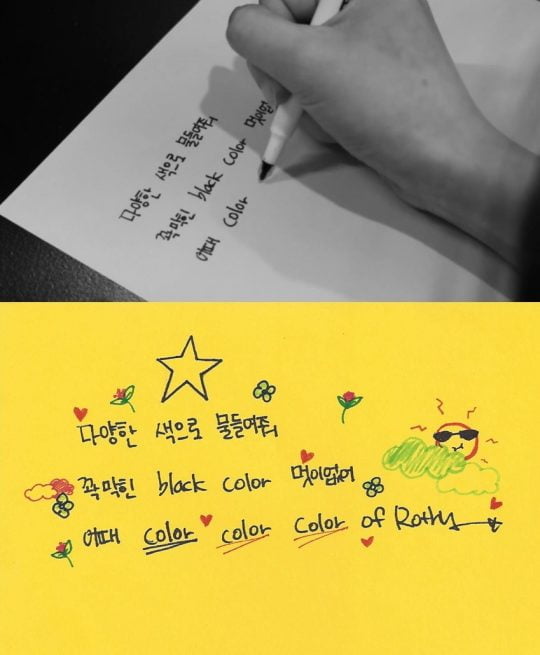 다양한 색으로 물들여줘
꽉 막힌 black color 멋이없
어때 color
다양한 색으로 물들여줘
꽉 막힌 black color 멋이없어
어때 color color color of Rothy